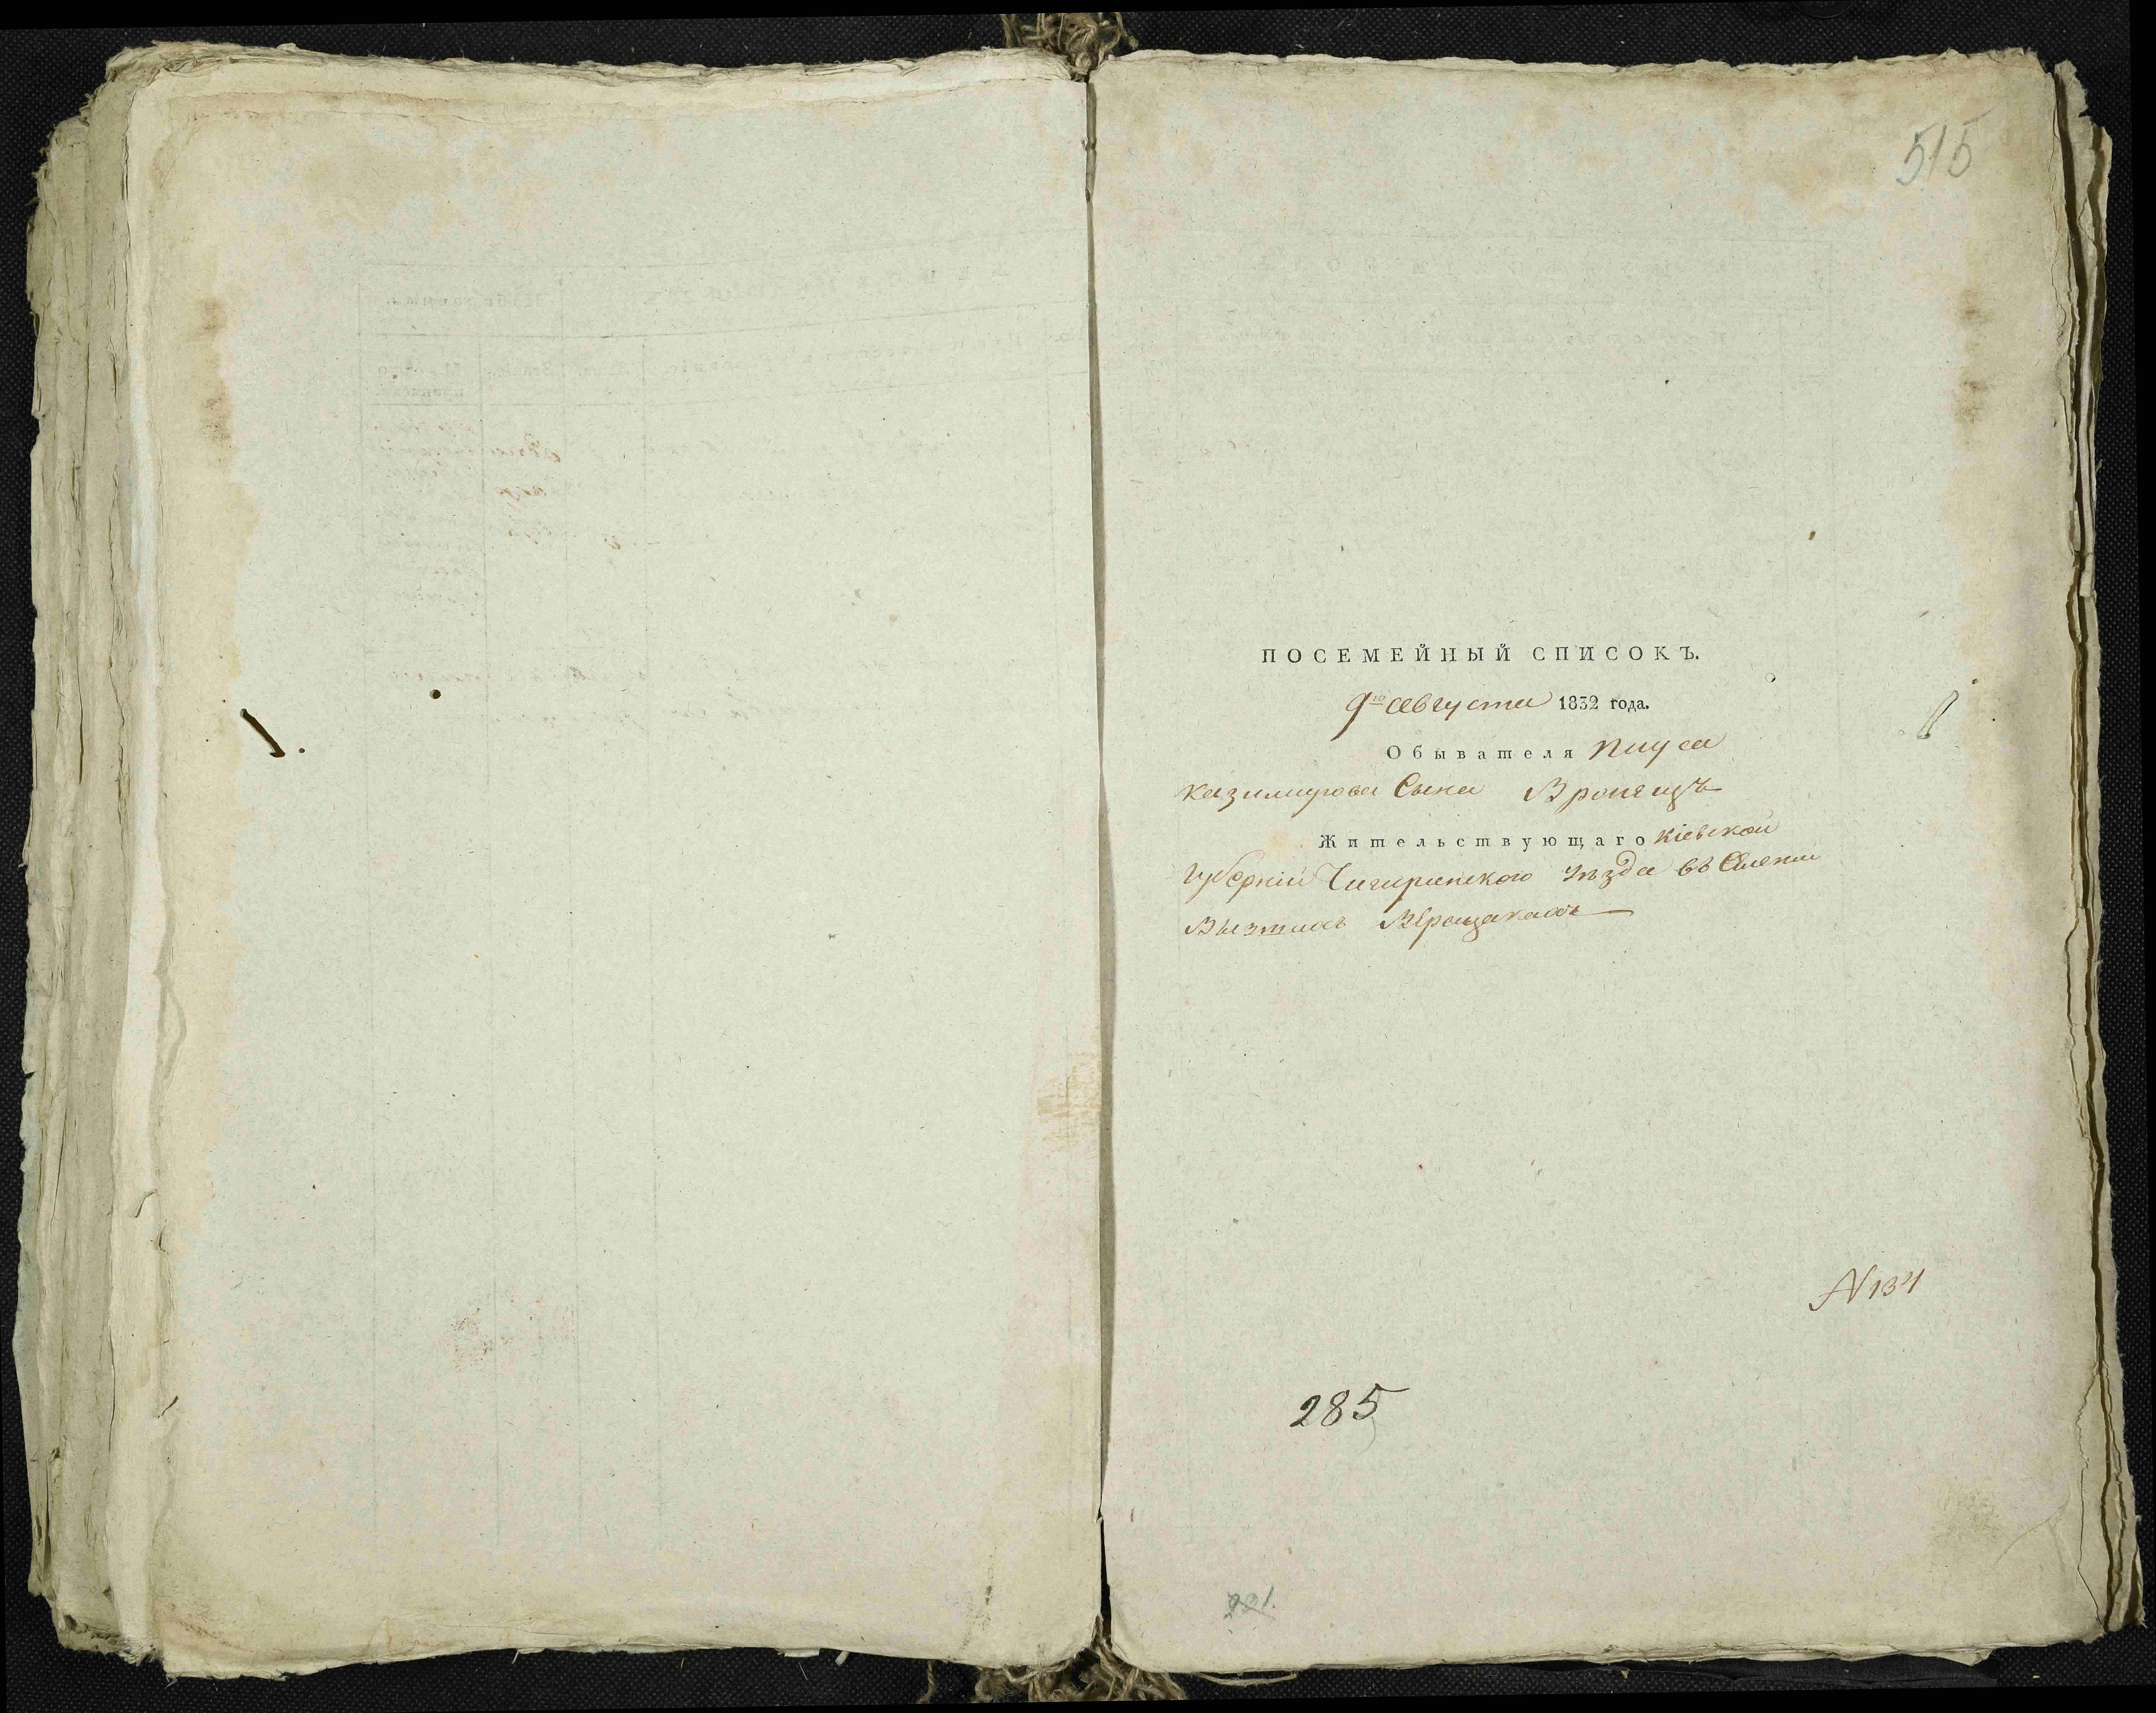 515
ПОСЕМЕЙНЫЙ СПИСОКЪ.
9го Августа 1832 года.
Обывателя Пиуса
Казимирова Сына
Жительствующаго Кіевской
Губерніи Чигиринского уѣзда въ Селеніи
Верещакахъ
N 134
285